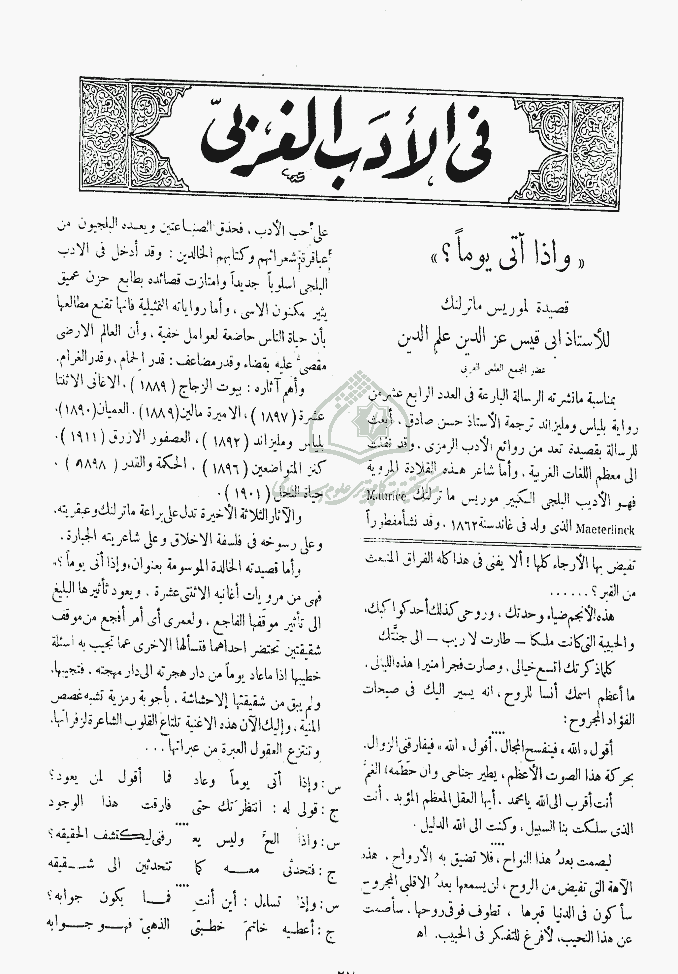 فى الأدب الغربىّ
« واذا آتى يوماً ؟ »
قصيدة لموريس ماترلنك
للأستاذ ابى قيس عز الدين علم الدين
عضو المجمع العلمى العربى
بمناسبة مانشرته الرسالة البارعة فى العدد الرابع عشر من
رواية بلياس ومليزاند ترجمة الأستاذ حسن صادق ، أبعث
للرسالة بقصيدة تعد من روائع الأدب الرمزى ، وقد نقلت
الى معظم اللغات الغربية . وأما شاعر هذه القلادة المروية
فهو الأديب البلجى الكبير موريس ماترلنك Maurice
Maeterlinck الذى ولد فى غاندسنة ١٨٦٢ ، وقد نشأ مفطوراً
تفيض بها الأرجاء كلها ! ألا يفنى فى هذا كله الفراق المنبعث
من القبر ؟ ......
هذه الأنجم ضياء وحدتك ، وروحى كذلك أحد كواكبك،
والحبيبة التى كانت ملكا — طارت لا ريب — الى جنتك
كلما ذكرتك اتسع خيالى . وصارت فجرا منيرا هذه الليالى .
ما أعظم اسمك أنسا للروح ، انه يسير اليك فى صيحات
الفؤاد المجروح :
أقول « الله » فينفسح المجال . أقول « الله » فيفارقنى الزوال .
بحركة هذا الصوت الأعظم ، يطير جناحى وان حطمه الغمّ
أنت أقرب الى الله يا محمد . أيها العقل المعظم المؤيد . أنت
الذى سلكت بنا السبيل ، وكنت الى الله الدليل .
ليصمت بعدُ هذا النواح ، فلا تضيق به الأرواح . هذه
الآهة التى تفيض من الروح ، لن يسمعها بعدُ الاقلبى المجروح
سأكون فى الدنيا قبرها ، تطوف فوقى روحها . سأصمت
عن هذا النحيب ، لأفرغ للتفكر فى الحبيب . اه
على حب الأدب ، فحذق الصناعتين ويعده البلجيون من
عباقرة شعرائهم وكتابهم الخالدين : وقد أدخل فى الادب
البلجى اسلوباً جديداً وامتازت قصائده بطابع حزن عميق
يثير مكنون الاسى ، وأما رواياته التمثيلية فانها تقنع مطالعها
بأن حياة الناس خاضعة لعوامل خفية ، وأن العالم الارضى
مقضىّ عليه بقضاء وقدر مضاعف : قدر الحمام ، وقدر الغرام.
وأهم آثاره : بيوت الزجاج ( ١٨٨٩ ) ، الاغانى الاثنتا
عشرة ( ١٨٩٧ ) ، الاميرة مالين (١٨٨٩) ، العميان (١٨٩٠)،
بلياس ومليزاند ( ١٨٩٢ ) ، العصفور الازرق ( ١٩١١ ) .
كنز المتواضعين ( ١٨٩٦ ) ، الحكمة والقدر ( ١٨٩٨ ) ،
حياة النحل ( ١٩٠١ ) .
والآثار الثلاثة الأخيرة تدل على براعة ماترلنك وعبقريته.
وعلى رسوخه فى فلسفة الاخلاق وعلى شاعريته الجبارة .
وأما قصيدته الخالدة الموسومة بعنوان « واذا أتى يوماً ؟ »
فهى من مرويات أغانيه الاثنتى عشرة . ويعود تأثيرها البليغ
الى تأثير موقفها الفاجع . ولعمرى أى أمر أفجع من موقف
شقيقتين تحتضر احداهما فتسألها الاخرى عما تجيب به اسئلة
خطيبها اذا ماعاد يوماً من دار هجرته الى دار مهجته . فتجيبها.
ولم يبق من شقيقتها إلا حشاشة . بأجوبة رمزية تشبه غصص
المنية . واليك الآن هذه الاغنية تلتاع القلوب الشاعرة لزفراتها.
وتنتزع العقول العبرة من عبراتها ...
س : واذا أتى يوماً وعاد فما أقول لمن يعود ؟
ج : قولى له : انتظرتك حتى فارقت هذا الوجود
س : واذا الحّ وليس يعـ رفنى ليكتشف الحقيقه ؟
ج : فتحدثى معه كما تتحدثين الى شقيقه
س : وإذا تساءل : أين أنتِ فما يكون جوابه ؟
ج : أعطيه خاتم خطبتى الذهبىّ فهو جوابه